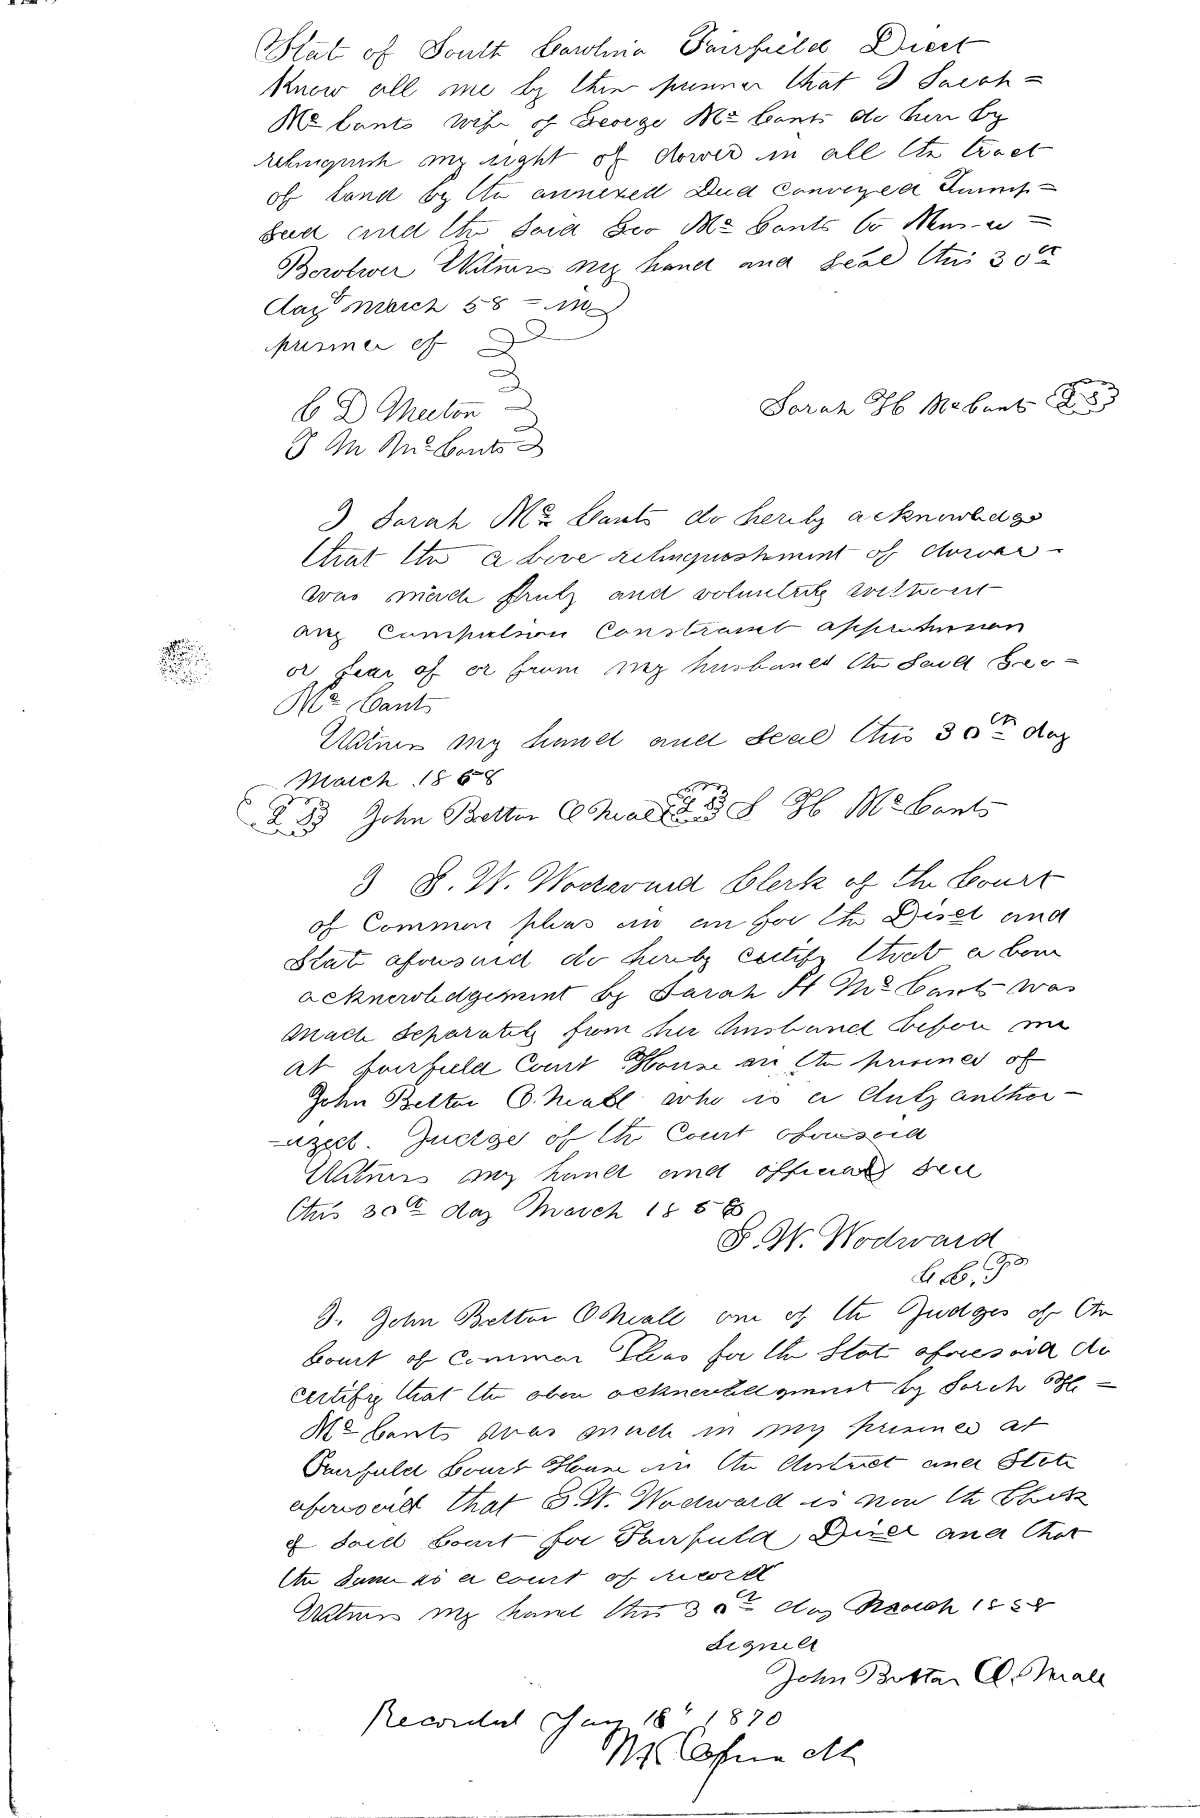 Stat of South Carolina Fairfield Dict
Know all me by thes that I Sarah =
Mc Cants wife of George Mc Cants do here by
relinquish my right of dower in all the tract
of land by the annexed Deed Conveyed
and the Said Geo Mc Cants to =
Witness my hand and seal this 30th
day March 58 = in
presince of
C D Meeton
J M Mc Cants
Sarah H Mc Cants L S
I Sarah Mc Cants do hereby acknowledge
that the above relinquishment of dower -
was made fruly and voluntily without
any Compulsion Constraint
or fear of or from my husband the Said Geo =
Mc Cants
Witness my hand and seal this 30th day
March 1858
L S John Beltor O Neall L S S H Mc Cants
I S. W. Wodward Clerk of the Court
of Common pleas in an for the Disct and
Stat aforesaid do hereby certify that a bove
acknowledgemint by Sarah H Mc Cants was
Made separately from her husband before me
at fairfield Court House in the presince of
John Beltor O. Neall who is a duly author -
-ized. Judge of the Court aforesaid
Witness my hand and official seal
this 30th day March 1858
S. W. Wodward
C C. P
I. John Beltor O Neall one of the Judges of the
Court of Common Pleas for the Stat aforesaid do
certify that the above acknowledgment by Sarah H =
Mc Cants was made in my presince at
Fairfield Court House in the district and State
aforesaid that S. W. Wodward is now the Clerk
of said Court for Fairfield Disct and that
the same is a court of record
Witness my hand this 30th day March 1858
Signed
John Beltor O. Neall
Recorded Jany 18" 1870